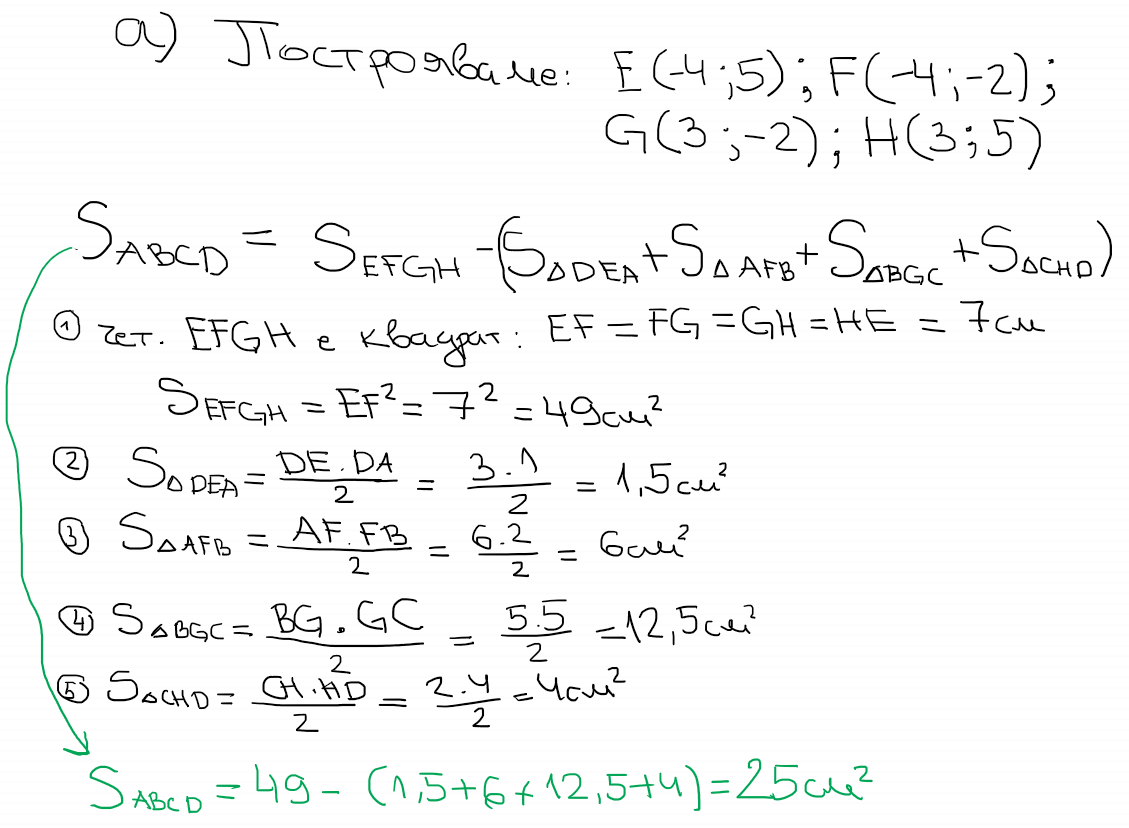 а) Построяваме: E(-4;5); F(-4;-2);
G(3;-2); H(3;5)
S_ABCD = S_EFGH -(S_ΔDEA + S_ΔAFB + S_ΔBGC + S_ΔCHD)
① чет. EFGH е квадрат: EF = FG = GH = HE = 7см
S_EFGH = EF² = 7² = 49см²
② S_ΔDEA = DE.DA/2 = 3.1/2 = 1,5см²
③ S_ΔAFB = AF.FB/2 = 6.2/2 = 6см²
④ S_ΔBGC = BG.GC/2 = 5.5/2 = 12,5см²
⑤ S_ΔCHD = CH.HD/2 = 2.4/2 = 4см²
S_ABCD = 49 - (1,5+6+12,5+4) = 25см²